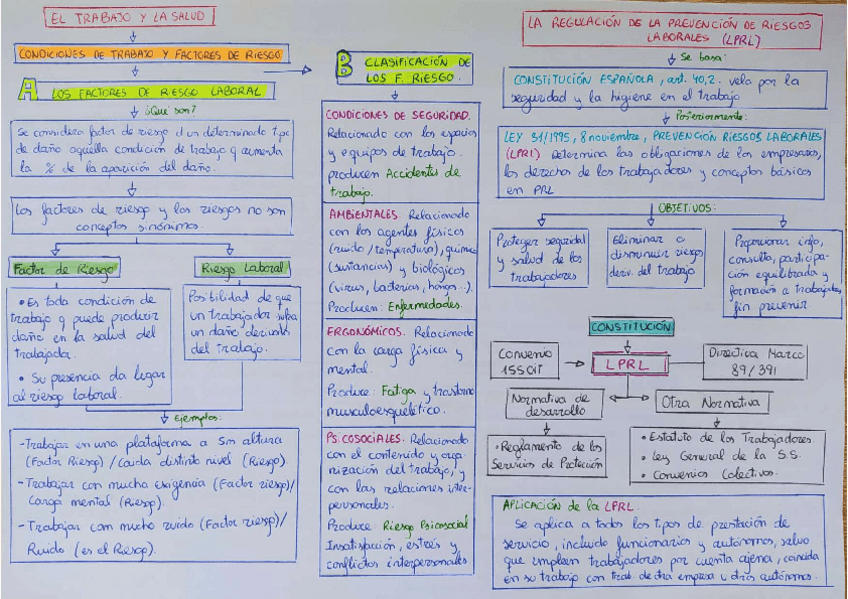 EL TRABAJO Y LA SALUD
CONDICIONES DE TRABAJO Y FACTORES DE RIESGO
A LOS FACTORES DE RIESGO LABORAL
¿Qué son?
Se considera factor de riesgo d un determinado tipo
de daño aquella condición de trabajo q aumenta
la % de la aparición del daño.
Los factores de riesgo y los riesgos no son
conceptos sinónimos.
Factor de Riesgo
• Es toda condición de
trabajo q puede producir
daño en la salud del
trabajador.
• Su presencia da lugar
al riesgo laboral.
Riesgo Laboral
Posibilidad de que
un trabajador sufra
un daño derivado
del trabajo.
Ejemplos:
-Trabajar en una plataforma a 5m altura
(Factor Riesgo) / Caída distinto nivel (Riesgo).
-Trabajar con mucha exigencia (Factor riesgo)/
Carga mental (Riesgo).
-Trabajar con mucho ruido (Factor riesgo)/
Ruido (es el Riesgo).
B CLASIFICACIÓN DE
LOS F. RIESGO.
CONDICIONES DE SEGURIDAD.
Relacionado con los espacios
y equipos de trabajo.
producen Accidentes de
trabajo.
AMBIENTALES. Relacionado
con los agentes físicos
(ruido/temperatura), químicos
(sustancias) y biológicos
(virus, bacterias, hongos...).
Producen: Enfermedades.
ERGONÓMICOS. Relacionado
con la carga física y
mental.
Produce: Fatiga y trastorno
musculoesquelético.
PSICOSOCIALES. Relacionado
con el contenido y orga-
nización del trabajo, y
con las relaciones inter-
personales.
Produce Riesgo Psicosocial
Insatisfacción, estrés y
conflictos interpersonales
LA REGULACIÓN DE LA PREVENCIÓN DE RIESGOS
LABORALES (LPRL)
Se basa:
CONSTITUCIÓN ESPAÑOLA, art. 40,2. vela por la
seguridad y la higiene en el trabajo
Posteriormente:
LEY 31/1995, 8 noviembre, PREVENCIÓN RIESGOS LABORALES
(LPRL) Determina las obligaciones de los empresarios,
los derechos de los trabajadores y conceptos básicos
en PRL
OBJETIVOS:
Proteger seguridad
y salud de los
trabajadores
Eliminar o
disminuir riesgos
deriv. del trabajo
Proporcionar info,
consulta, participa-
ción equilibrada y
formación a trabajadores
fin prevenir
CONSTITUCIÓN
Convenio
155 OIT
LPRL
Directiva Marco
89/391
Normativa de
desarrollo
Otra Normativa
• Reglamento de los
Servicios de Protección
• Estatuto de los Trabajadores
• Ley General de la S.S.
• Convenios Colectivos.
APLICACIÓN de la LPRL.
Se aplica a todos los tipos de prestación de
servicio, incluido funcionarios y autónomos, salvo
que empleen trabajadores por cuenta ajena, coincida
en su trabajo con trab. de otra empresa u otros autónomos.